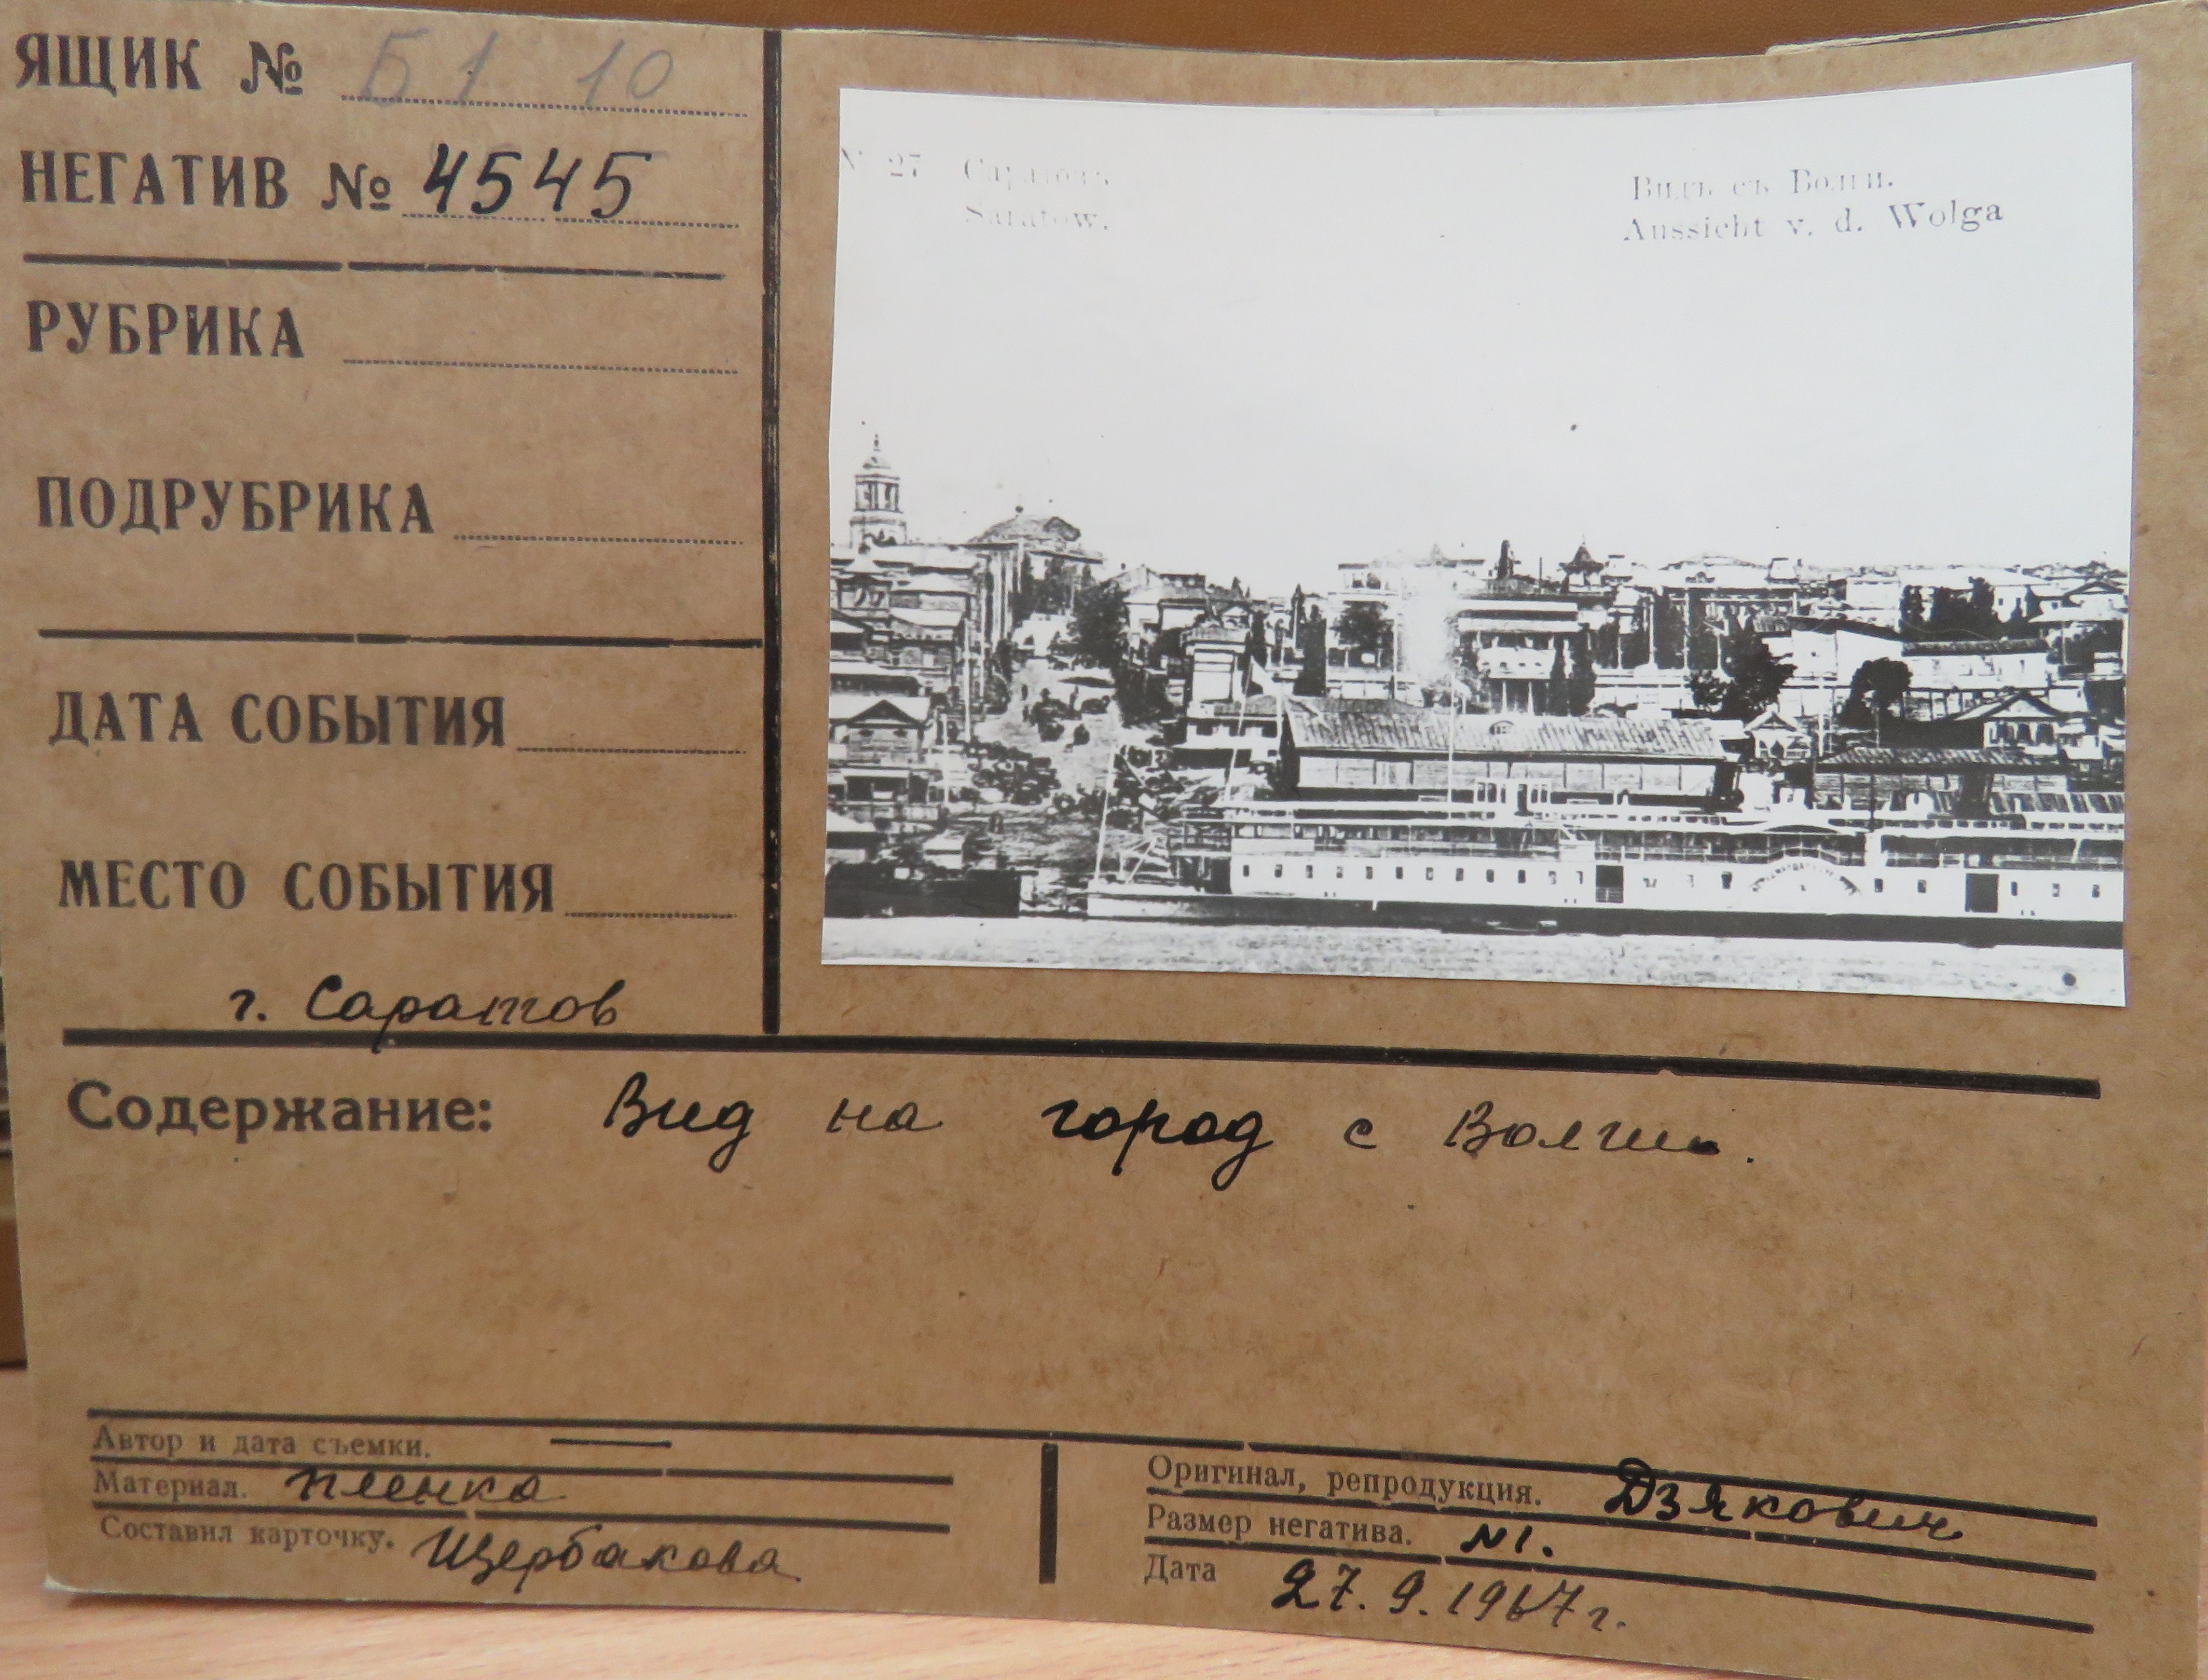 ЯЩИК № Б1 10
НЕГАТИВ № 4545
РУБРИКА
ПОДРУБРИКА
ДАТА СОБЫТИЯ
МЕСТО СОБЫТИЯ
г. Саратов
N 27 Саратовъ
Saratow.
Видъ съ Волги.
Aussicht v. d. Wolga
Содержание: Вид на город с Волги.
Автор и дата съемки. —
Материал. пленка
Составил карточку. Щербакова
Оригинал, репродукция. Дзякович
Размер негатива. N1.
Дата 27.9.1967г.